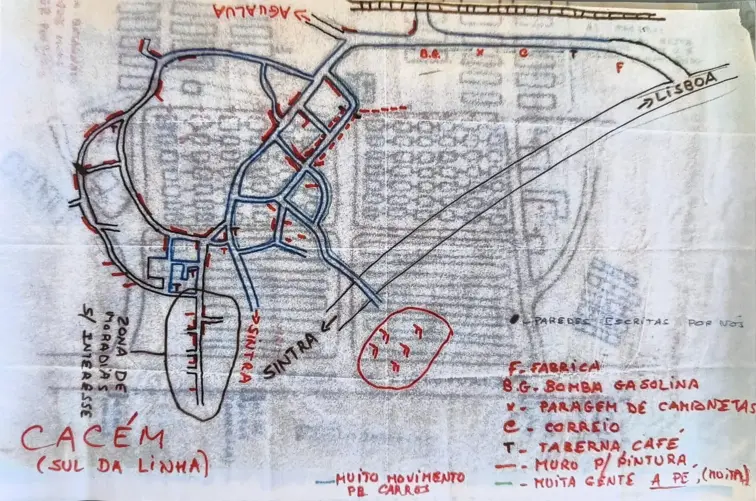 → AGUALVA
B.G.
x
C
T
F
→ LISBOA
T
T
T
T
→ SINTRA
SINTRA ←
ZONA DE
MORADIAS
S/ INTERESSE
● - PAREDES ESCRITAS POR NÓS
F - FABRICA
B.G. - BOMBA GASOLINA
x - PARAGEM DE CAMIONETAS
C - CORREIO
T - TABERNA CAFÉ
— - MURO P/ PINTURA
— - MUITA GENTE A PÉ, (MOITA)
— MUITO MOVIMENTO
DE CARROS
CACÉM
(SUL DA LINHA)